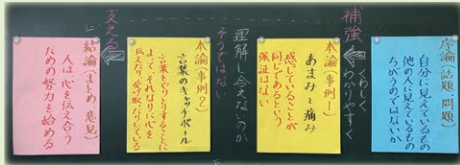 序論（話題、問題）
自分に見えているもの
他の人に見えているもの
ちがうのではないか
補強
くわしく
わかりやすく
本論（事例１）
あまみと痛み
感じていることが
同じであるという
保証はない
理解し合えないのか
そうではない
本論（事例２）
言葉のキャッチボール
言葉をやりとりすることに
よって、それなりに心を
伝えたり、受け取ったりしている
支える
結論（まとめ、意見）
人は心を伝え合う
ための努力を始める